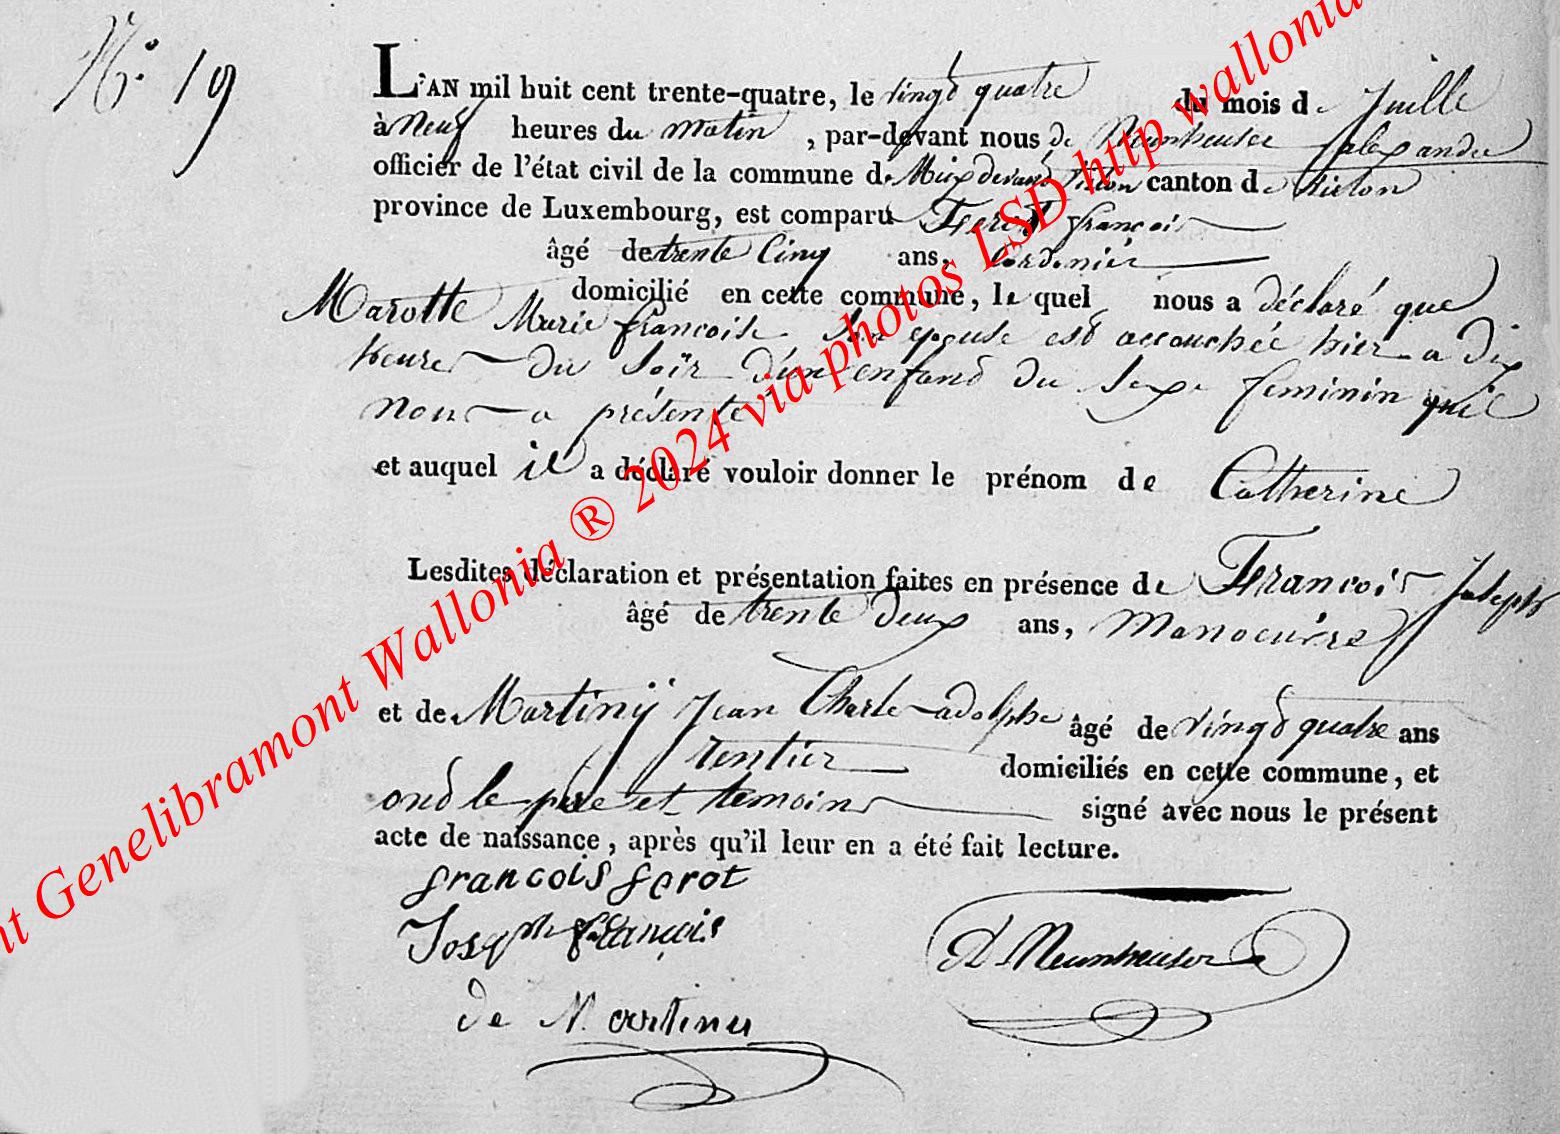 N.° 19
L'AN mil huit cent trente-quatre, le vingd quatre du mois de Juille
à Neuf heures du matin, par-devant nous de Neunheuser alexandre
officier de l'état civil de la commune de Meix devand Virton canton de Virton
province de Luxembourg, est comparu Ferot françois
âgé de trente Cinq ans, Cordonier
domicilié en cette commune, le quel nous a déclaré que
Marotte Marie francoise Son epouse esd accouchée hier a dix
heures du Soir d'un enfand du Sexe feminin qu'il
nous a présenté
et auquel il a déclaré vouloir donner le prénom de Catherine
Lesdites déclaration et présentation faites en présence de Francois Joseph
âgé de trente deux ans, Manoeuvre
et de Martiny Jean Charle adolphe âgé de vingd quatre ans
rentier domiciliés en cette commune, et
ond le pere et temoins signé avec nous le présent
acte de naissance, après qu'il leur en a été fait lecture.
francois ferot
Joseph françois
de Martiny
A Neunheuser
Genelibramont Wallonia ® 2024 via photos LSD http wallonia